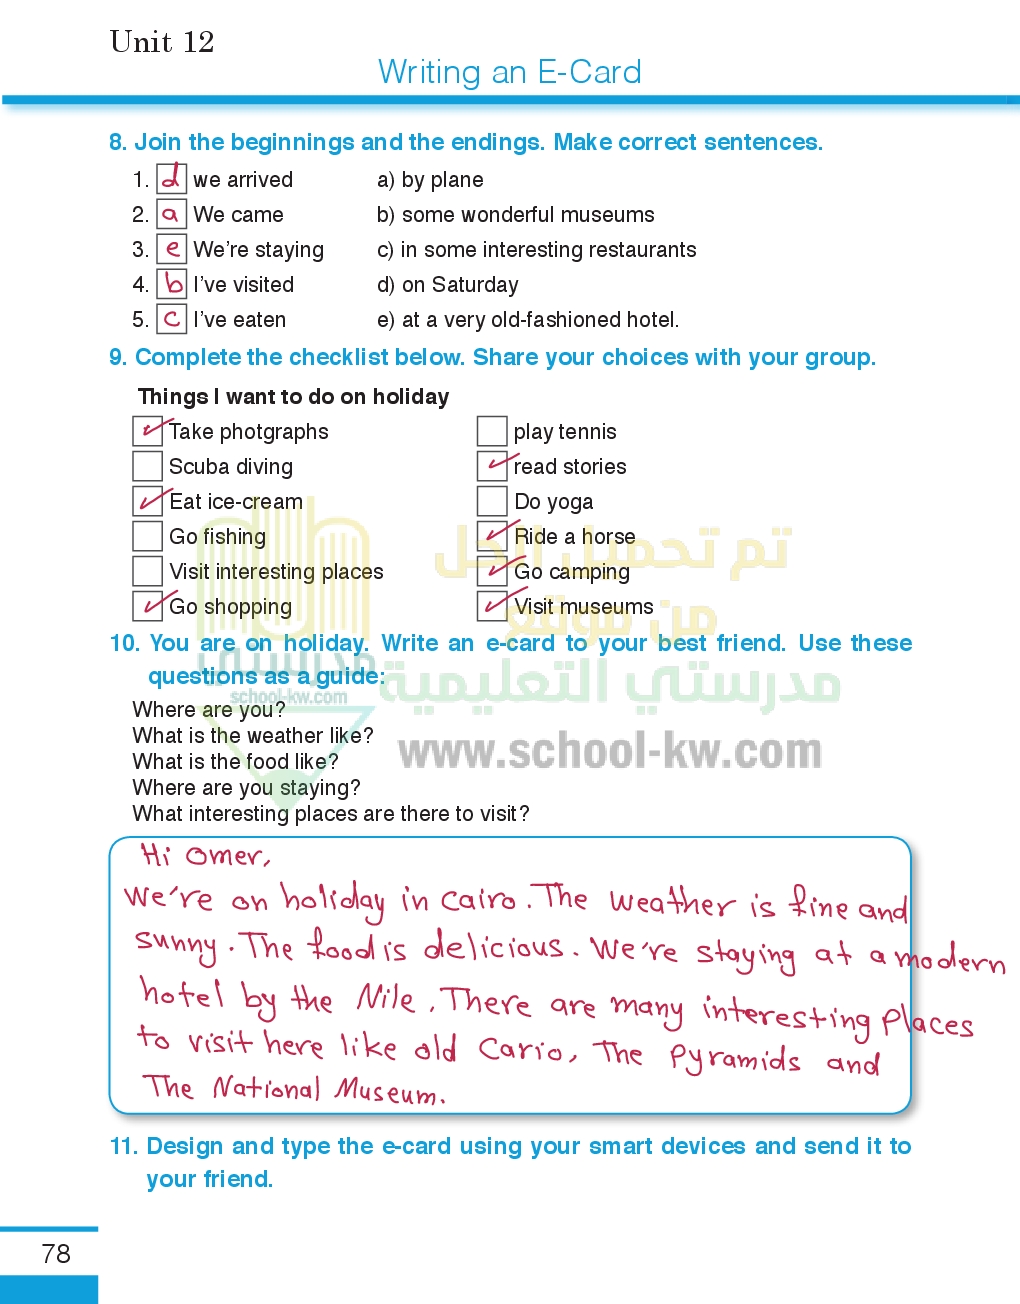 Unit 12
Writing an E-Card
8. Join the beginnings and the endings. Make correct sentences.
1. d we arrived a) by plane
2. a We came b) some wonderful museums
3. e We're staying c) in some interesting restaurants
4. b I've visited d) on Saturday
5. c I've eaten e) at a very old-fashioned hotel.
9. Complete the checklist below. Share your choices with your group.
Things I want to do on holiday
Take photgraphs play tennis
Scuba diving read stories
Eat ice-cream Do yoga
Go fishing Ride a horse
Visit interesting places Go camping
Go shopping Visit museums
تم تحميل الحل
من موقع
مدرستي التعليمية
www.school-kw.com
مدرستي
school-kw.com
10. You are on holiday. Write an e-card to your best friend. Use these
questions as a guide:
Where are you?
What is the weather like?
What is the food like?
Where are you staying?
What interesting places are there to visit?
Hi Omer,
We're on holiday in Cairo. The weather is fine and
sunny. The food is delicious. We're staying at a modern
hotel by the Nile. There are many interesting Places
to visit here like old Cario, The Pyramids and
The National Museum.
11. Design and type the e-card using your smart devices and send it to
your friend.
78